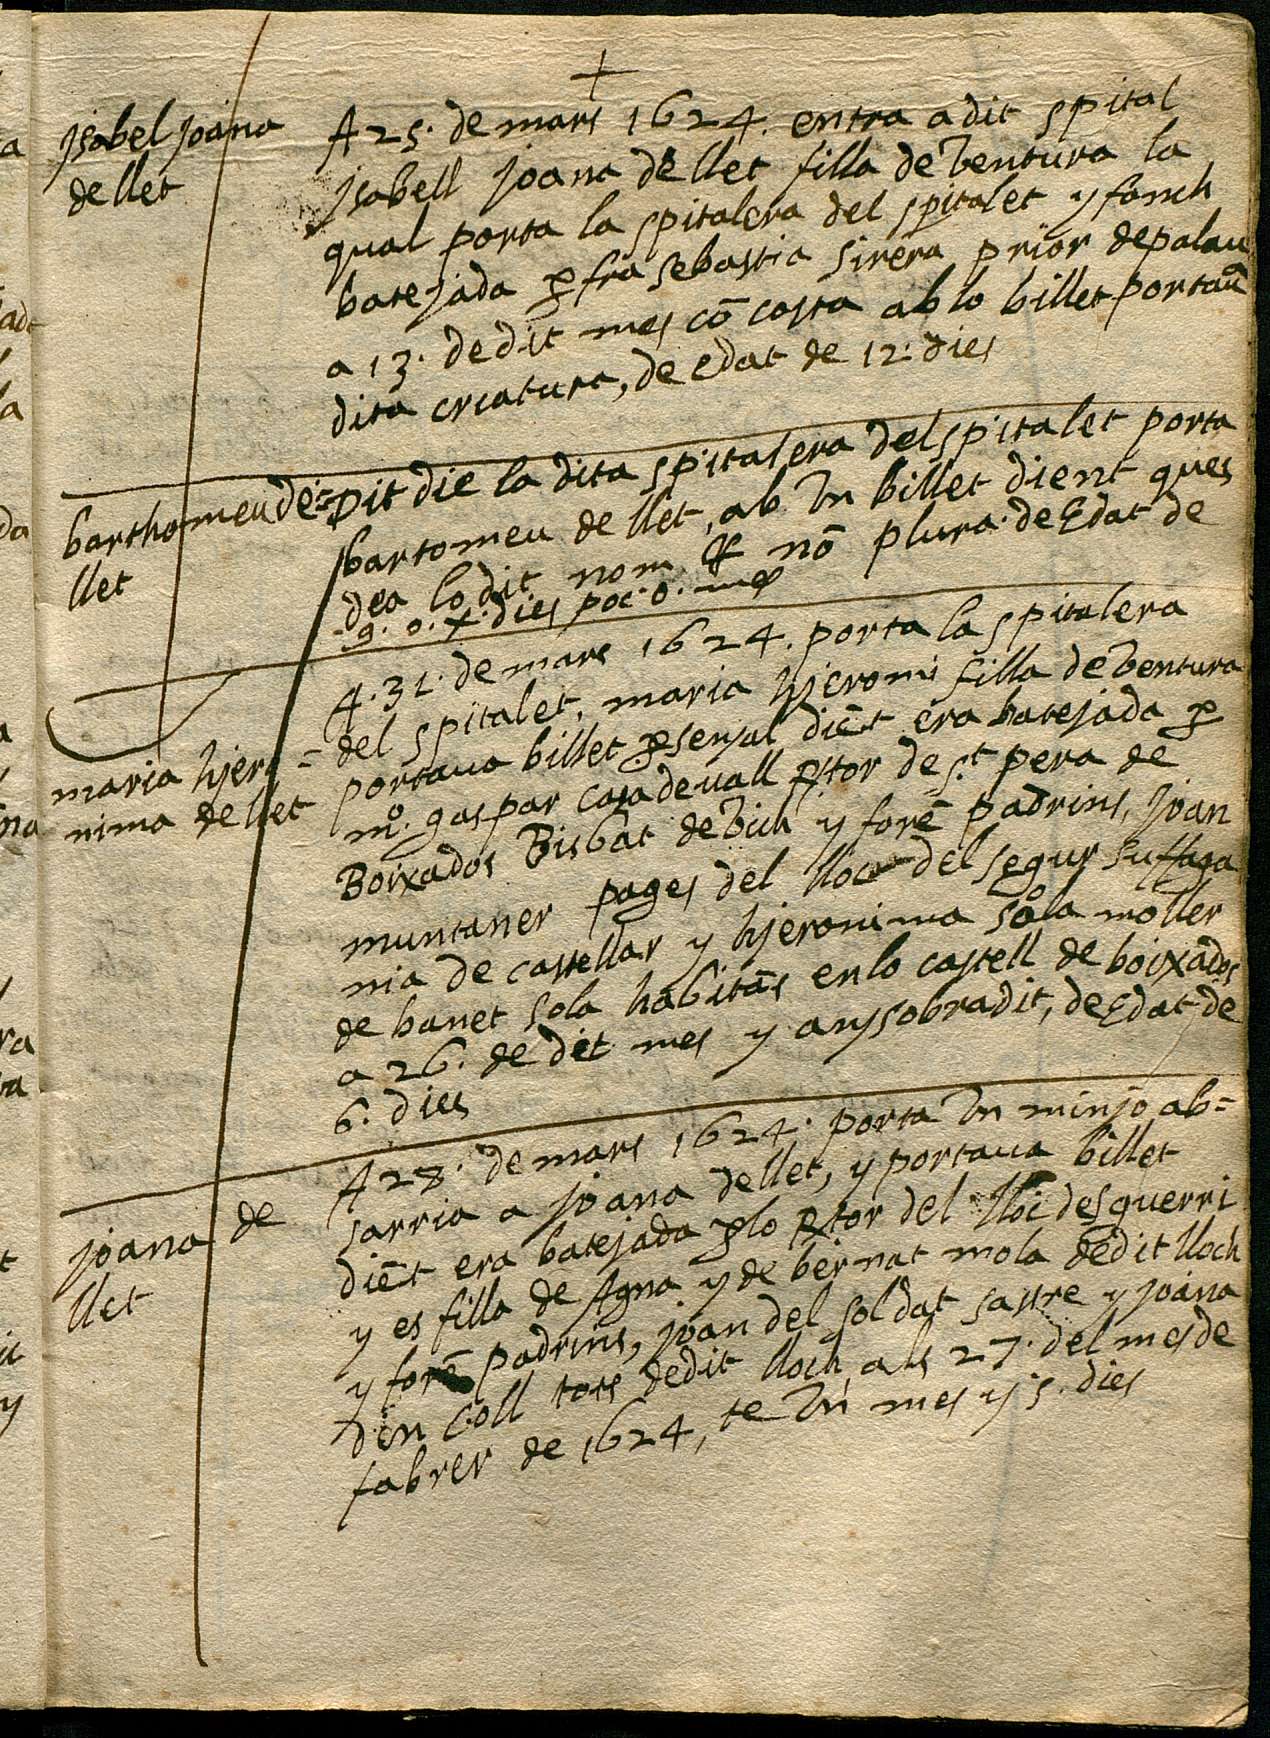 +
Jsabel joana
de llet
A 25. de mars 1624. entra a dit spital
Jsabell joana de llet filla de Ventura la
qual porta la spitalera del spitalet y fonch
batejada p fra sebastia sirera prior de palau
a 13. de dit mes cō costa ab lo billet portauā
dita criatura, de edat de 12. dies
barthomeu de
llet
Dit die la dita spitalera del spitalet porta
bartomeu de llet, ab Vn billet dient ques
dea lo dit nom & nō plura. de Edat de
9. o. X. dies poc. o. mes
maria hjero=
nima de llet
A. 31. de mars 1624. porta la spitalera
del spitalet, maria hjeromi filla de Ventura
portaua billet p senyal diēt era batejada p
mº. gaspar casadeuall rtor de st pera de
Boixados Bisbat de Vich y forē padrins, Joan
muntaner pages del lloc del segur suffaga
nia de castellar y hjeronima sola moller
de banet sola habitās en lo castell de boixados
a 26. de dit mes y any sobradit, de Edat de
6. dies
joana de
llet
A 28. de mars 1624. porta Vn minjo ab=
sarria a joana de llet, y portaua billet
diēt era batejada p lo rtor del lloc desguerri
y es filla de Agna y de bernat mola de dit lloch
y forē padrins, joan del soldat sastre y joana
den Coll tots de dit lloch als 27. del mes de
fabrer de 1624, te Vn mes y 5. dies